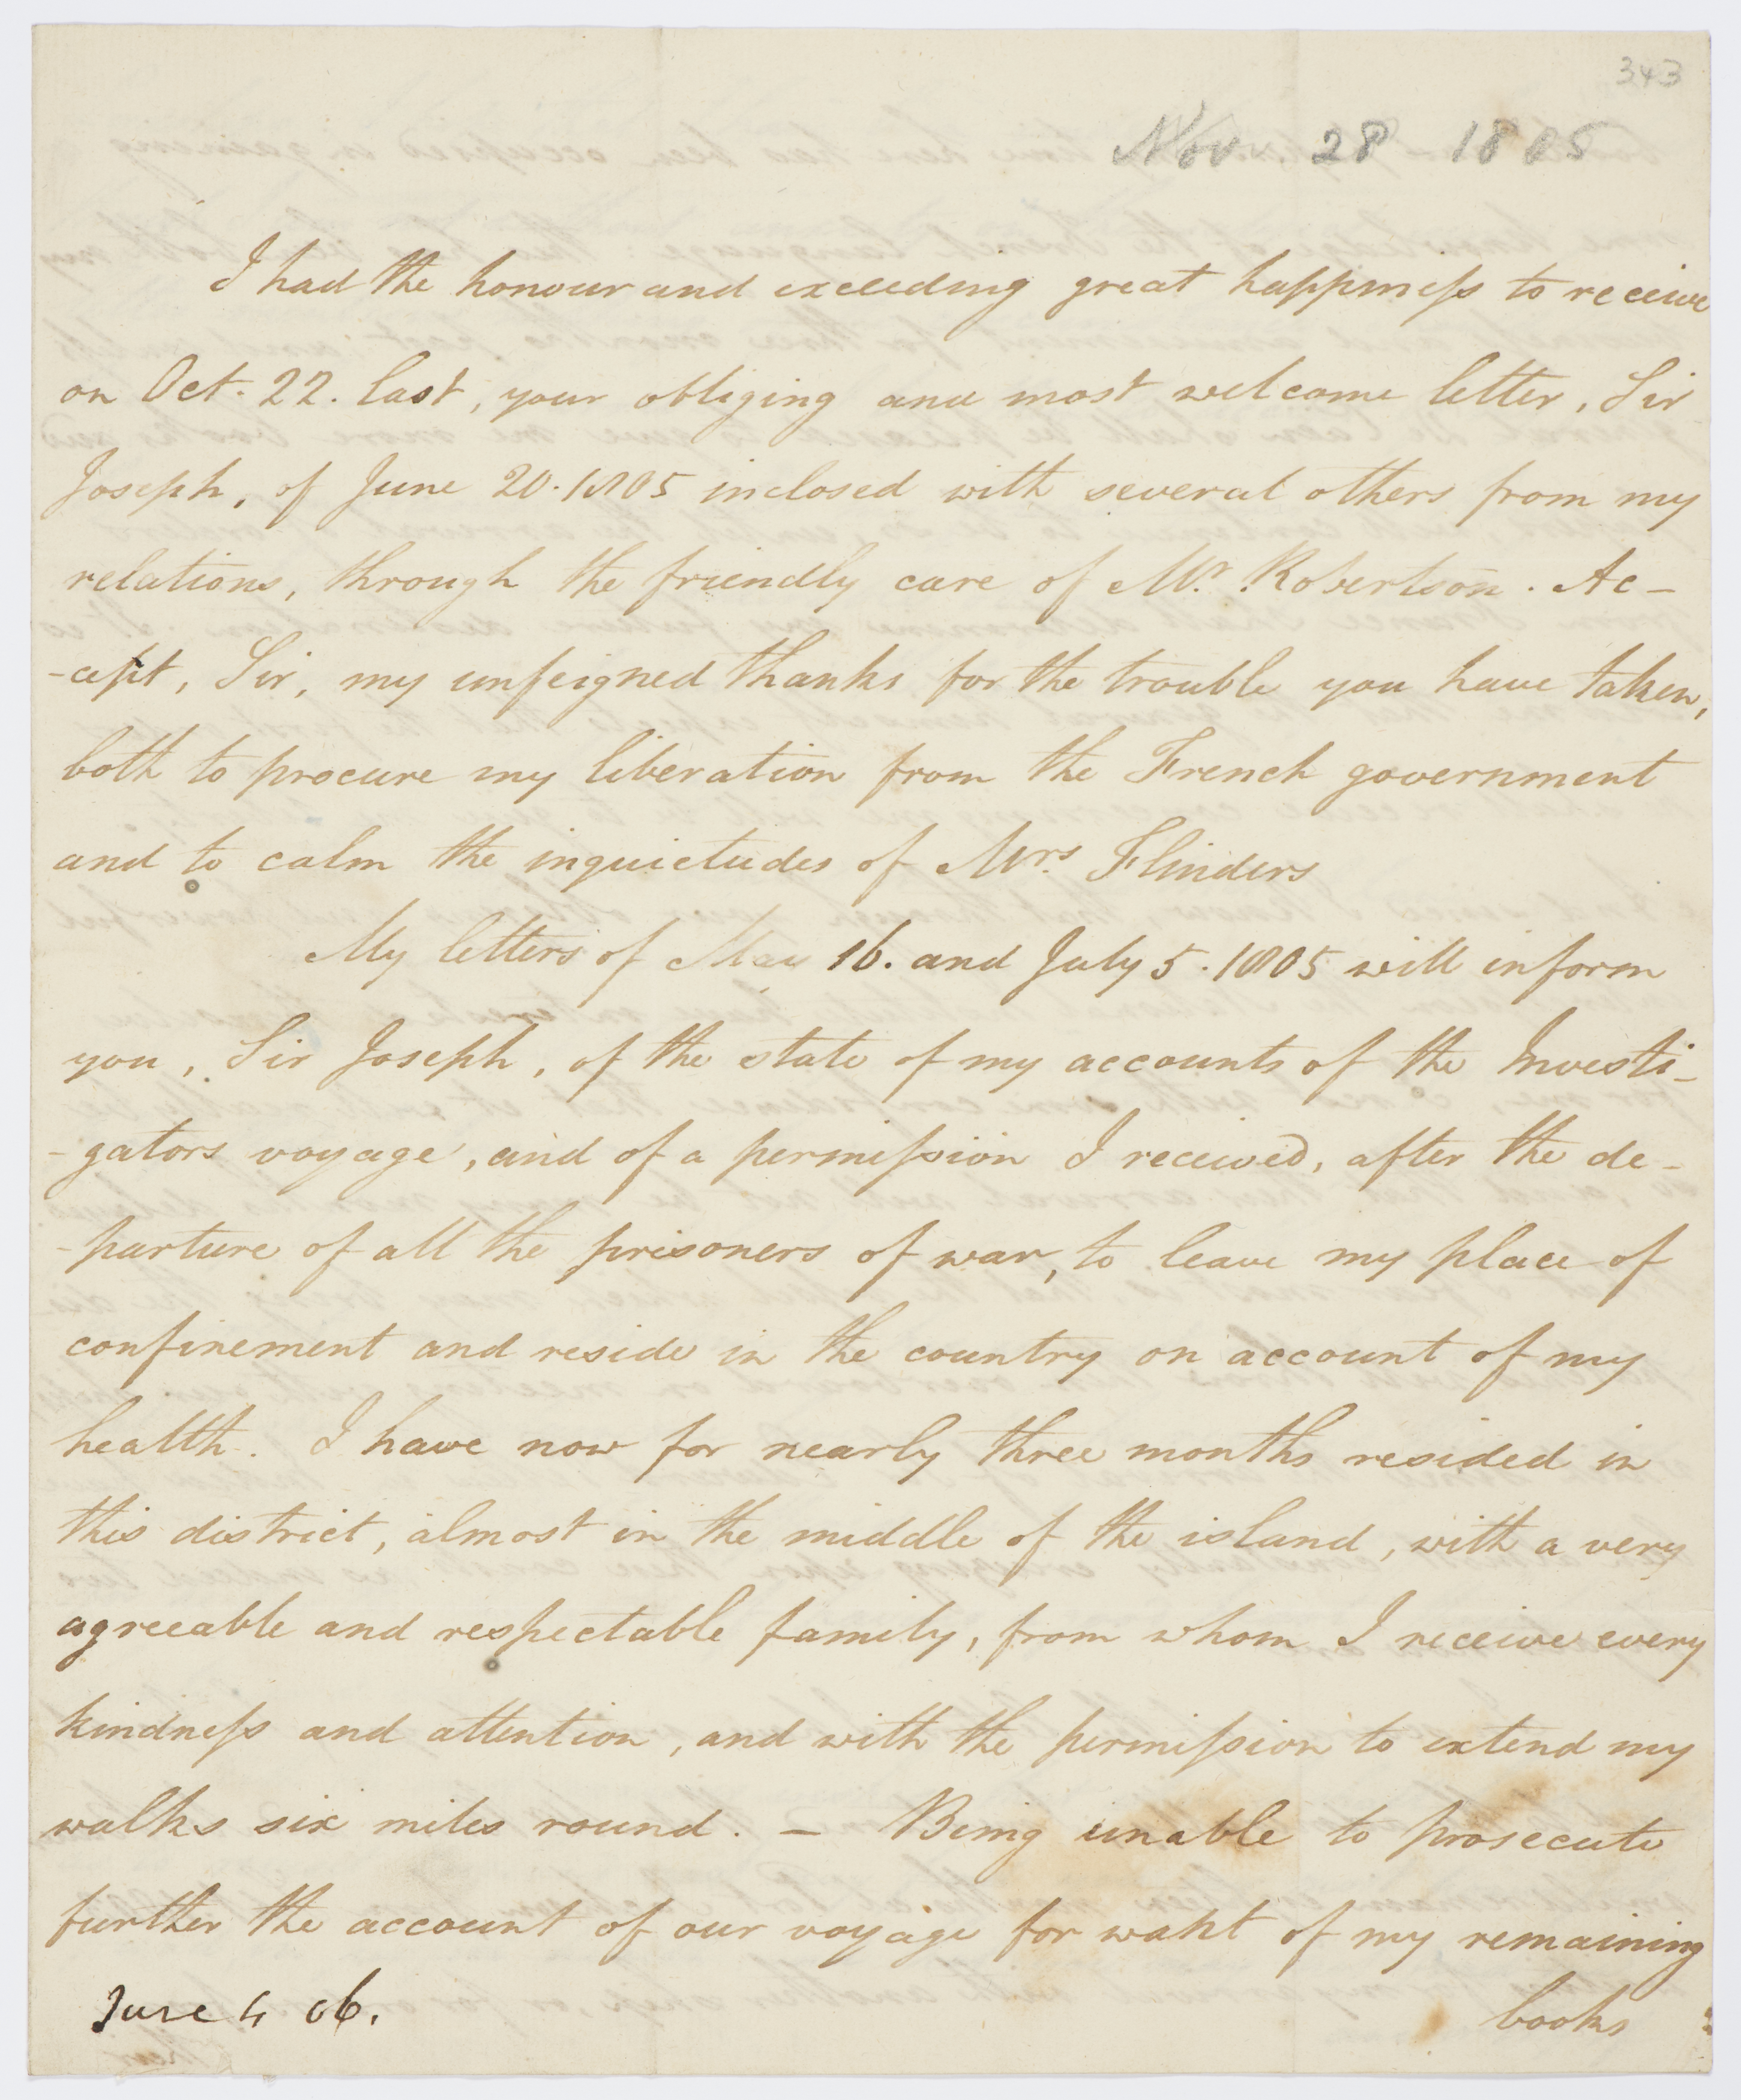 343
Nov. 28 1805
I had the honour and exceeding great happiness to receive
on Oct. 22. last, your obliging and most welcome letter, Sir
Joseph, of June 20. 1805 inclosed with several others from my
relations, through the friendly care of Mr. Robertson. Ac-
-cept, Sir, my unfeigned thanks for the trouble you have taken,
both to procure my liberation from the French government
and to calm the inquietudes of Mrs. Flinders
My letters of May 16. and July 5. 1805 will inform
you, Sir Joseph, of the state of my accounts of the Investi-
-gators voyage, and of a permission I received, after the de-
-parture of all the prisoners of war, to leave my place of
confinement and reside in the country on account of my
health. I have now for nearly three months resided in
this district, almost in the middle of the island, with a very
agreeable and respectable family, from whom I receive every
kindness and attention, and with the permission to extend my
walks six miles round. — Being unable to prosecute
further the account of our voyage for want of my remaining
June 4 06.
books